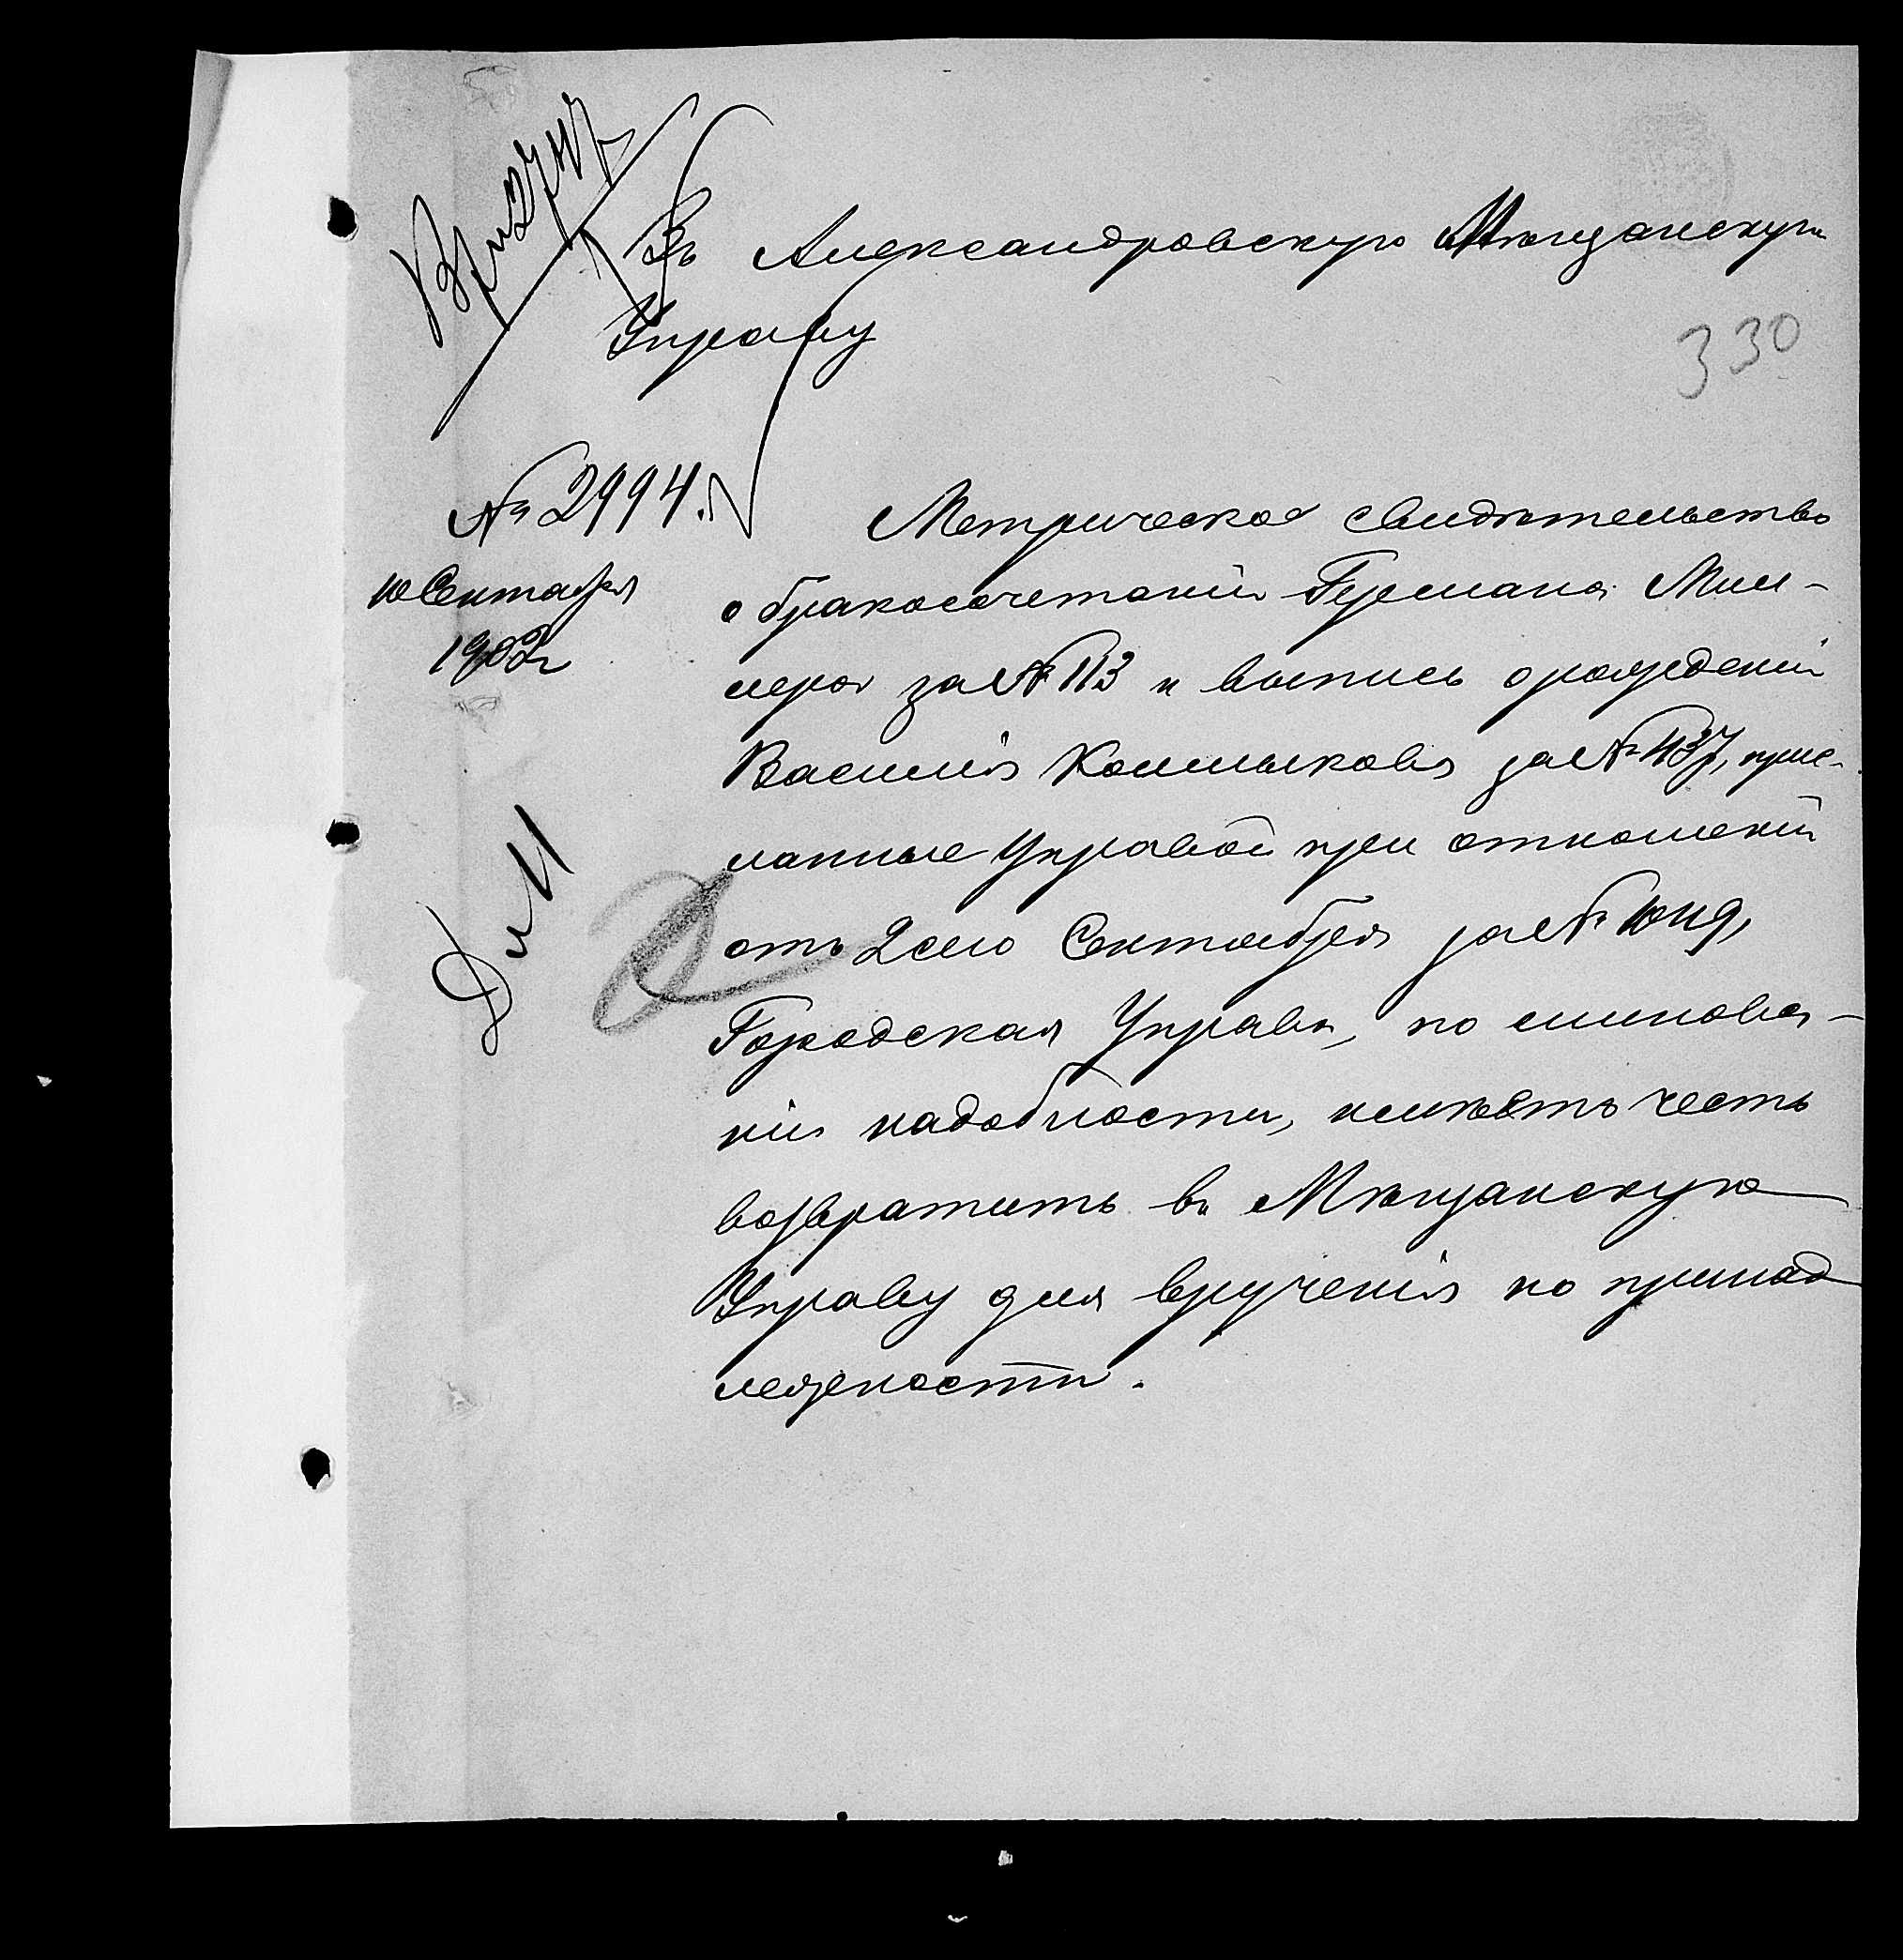 Въ Александровскую Мѣщанскую
Управу
330
№ 2994.
10 Сентября
1902 г
Метрическое свидѣтельство
о бракосочетаніи Германа Мил-
лера за № 113 и выпись о рожденіи
Василія Колмыкова за № 437, прис-
ланные Управой при отношеніи
отъ 2 сего Сентября за №
Городская Управа, по минова-
ніи надобности, имѣетъ честь
возвратить въ Мѣщанскую
Управу для врученія по принад
лежности.